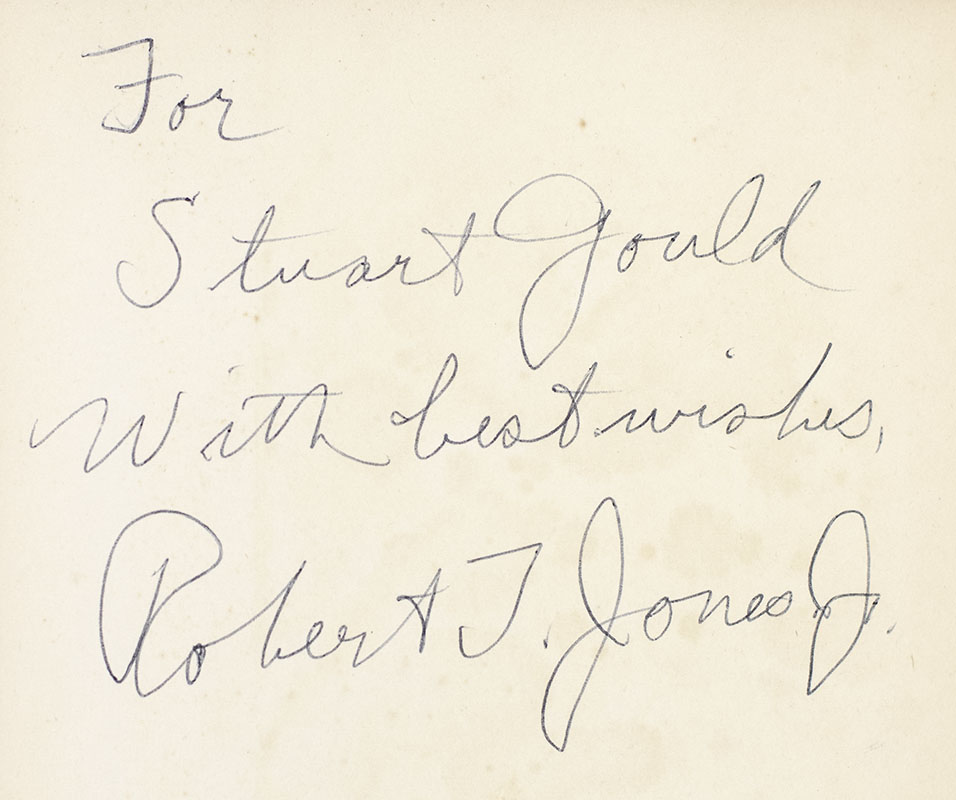 For
Stuart Gould
With best wishes,
Robert T. Jones Jr.